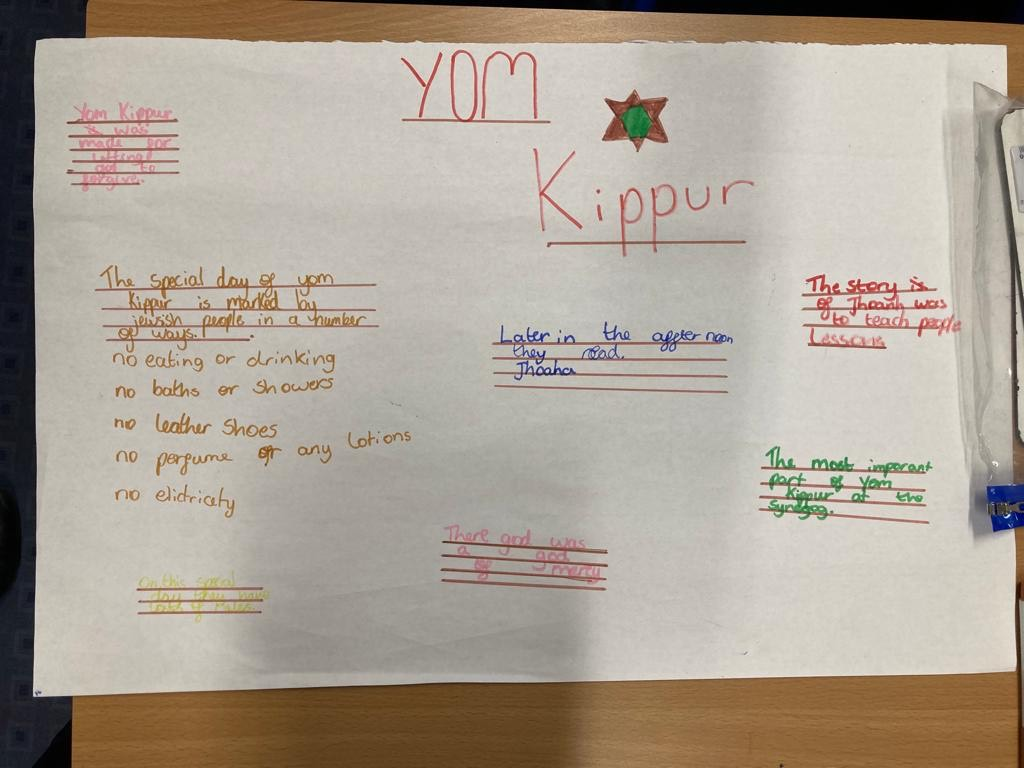 YOM
Kippur
Yom Kippur
is was
made for
letting
out to
forgive.
The special day of yom
Kippur is marked by
jewish people in a number
of ways.
no eating or drinking
no baths or showers
no leather shoes
no perfume or any lotions
no elidricety
Later in the affter noon
they read.
Jhoaha
The story is
of Jhoanh was
to teach people
Lessons
The most imporant
part of Yom
Kippur at the
synegog.
There god was
a god
of mercy
On this special
day they have
of rules.